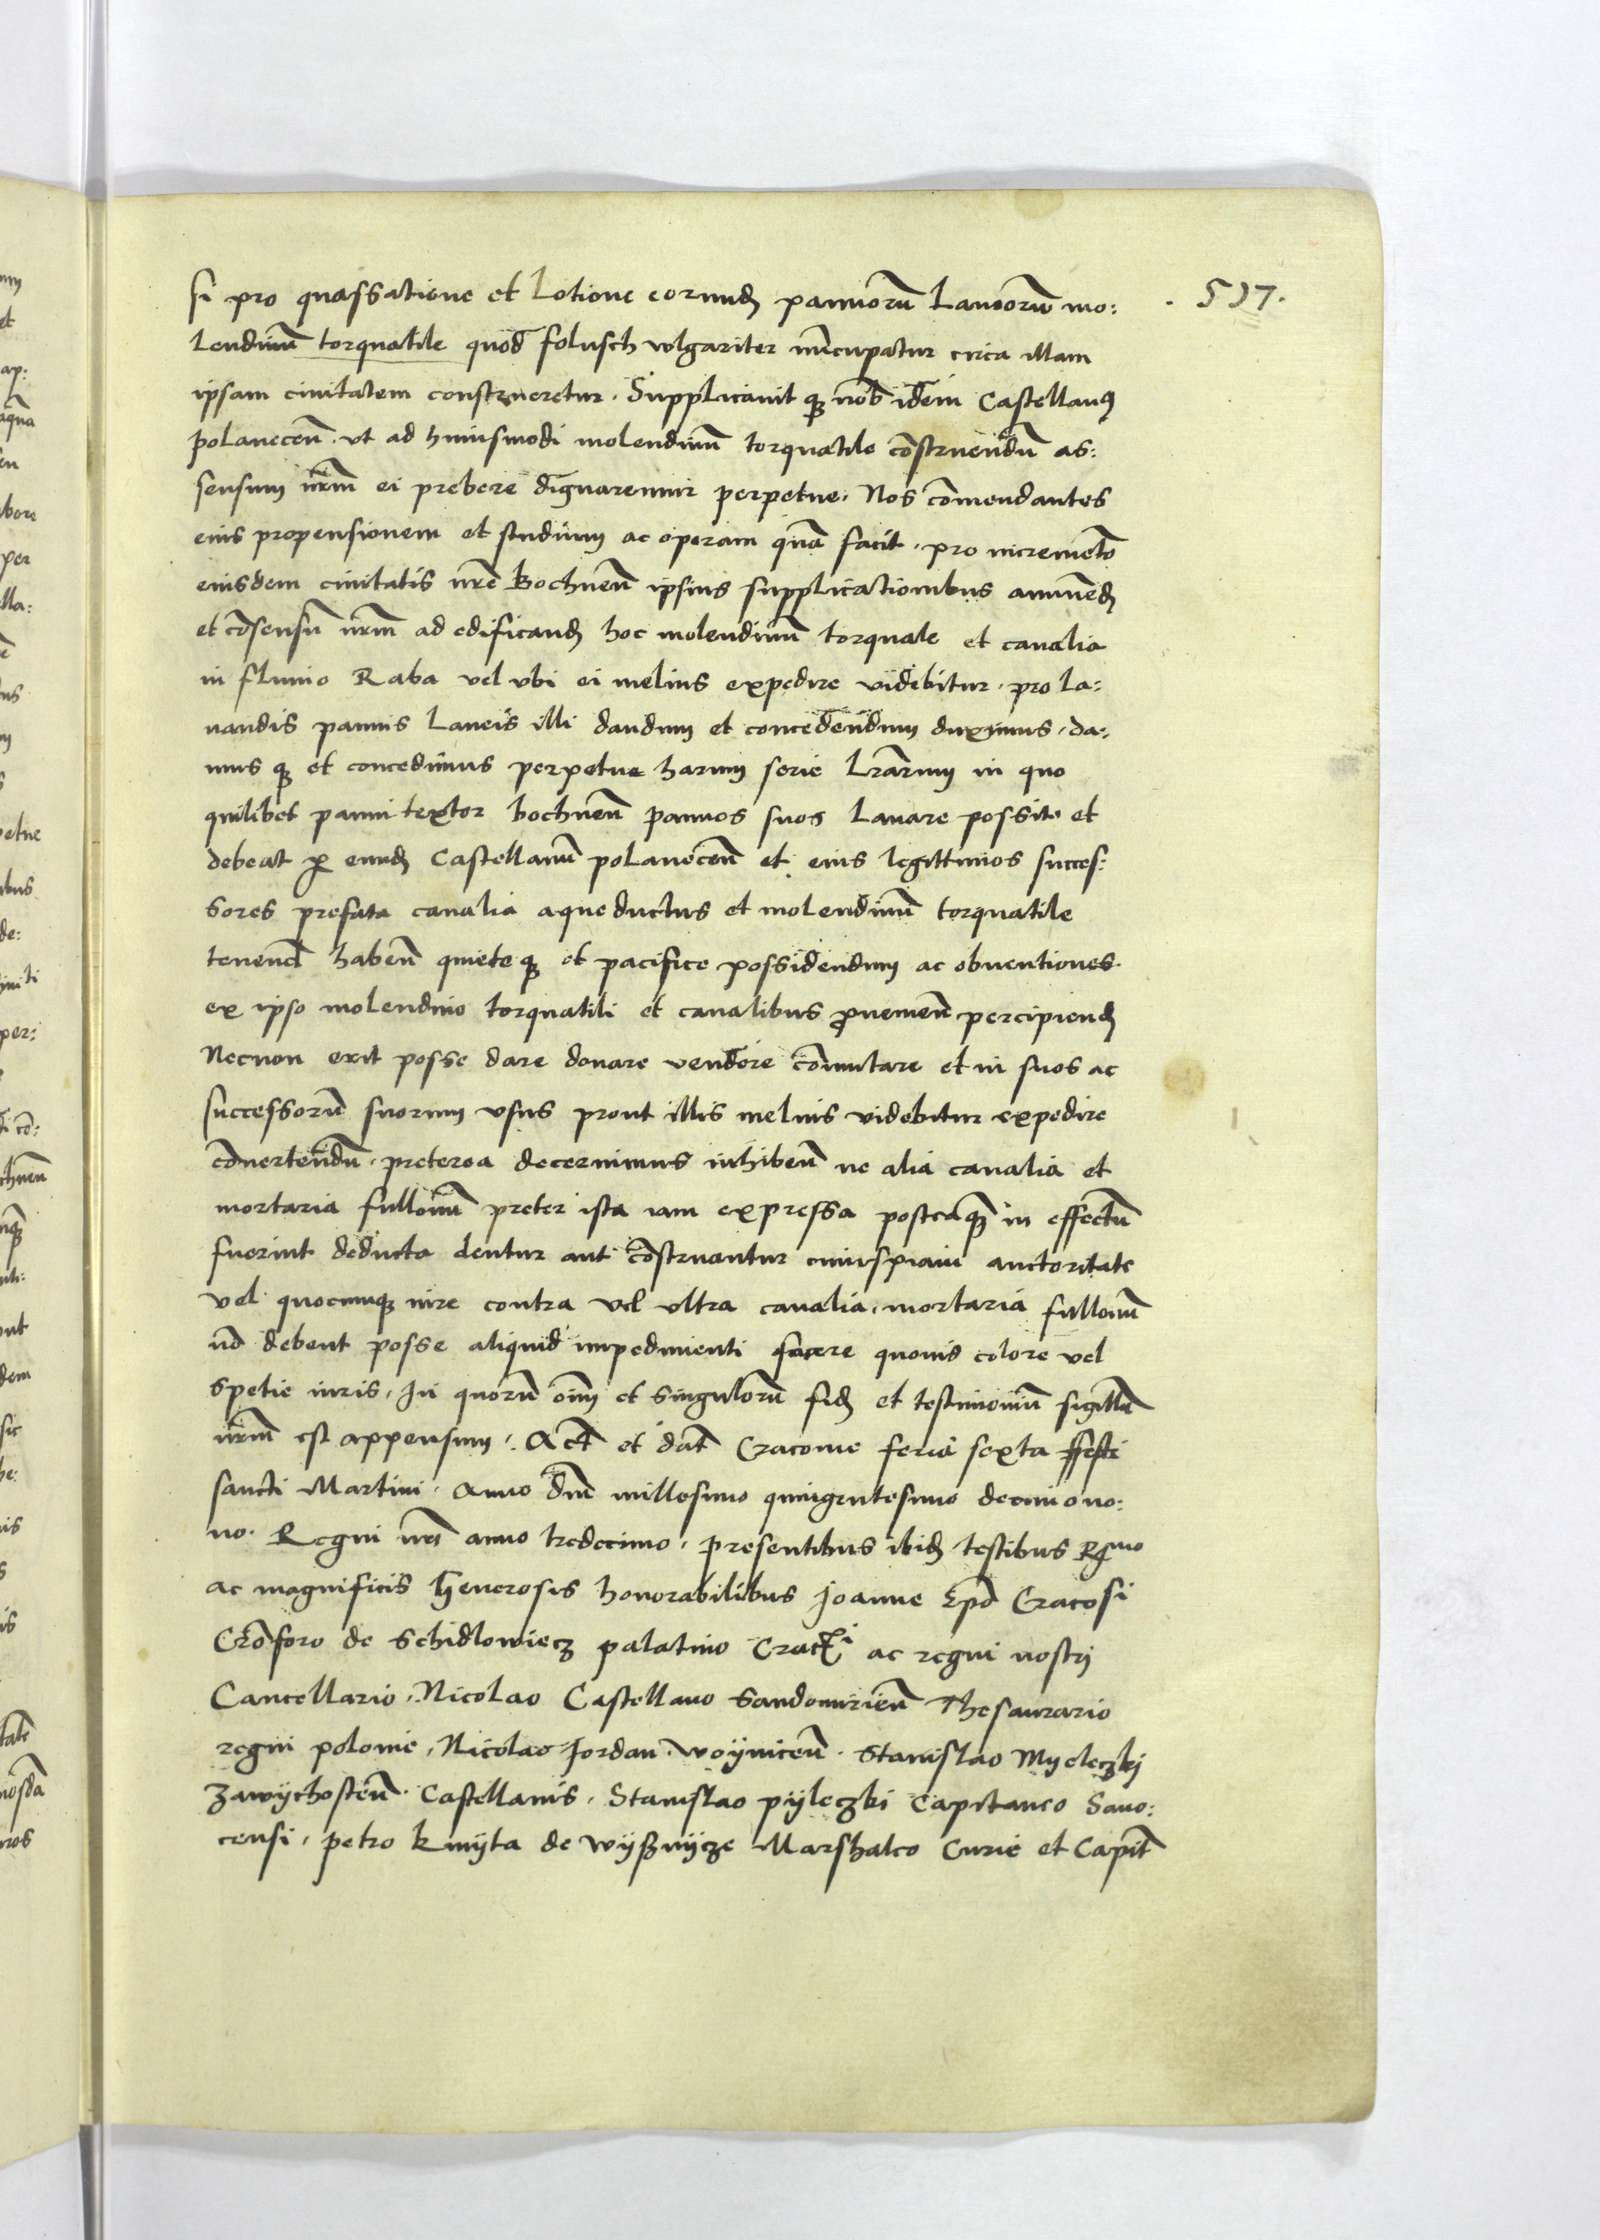 si pro quassatione et Lotione eorund pannorū Laneorū mo:
Lendinū torquatile quod folusch vlgariter nūcupatur circa illam
ipsam ciuitatem construeretur. Supplicauit q nob idem Castellanꝯ
polanecen̄. vt ad huiusmodi molendinū torquatile cōstruendū as:
sensum nrm̄ ei prebere dignaremur perpetue. Nos cōmendantes
eius propensionem et studium ac operam quā facit. pro incremēto
eiusdem ciuitatis nrē Bochnen̄ ipsius supplicationibus annuend
et cōsensū nrm̄ ad edificand hoc molendinū torquale et canalia
in fluuio Raba vel vbi ei melius expedire videbitur. pro la:
uandis pannis Laneis illi dandum et concedendum duximus. da:
mus q et concedimus perpetue harum serie Lrārum in quo
quilibet panni textor bochnen̄ pannos suos Lauare possit et
debeat ꝑ eund Castellanū polanecen̄ et eius legittimos succes:
sores prefata canalia aque ductus et molendinū torquatile
tenend haben̄ quiete q et pacifice possidendum ac obuentiones.
ex ipso molendino torquatili et canalibus ꝓuenien̄ percipiend
Necnon erit posse dare donare vendere cōmutare et in suos ac
successorū suorum vsus prout illis melius videbitur expedire
cōuertendū. preterea decernimus inhiben̄ ne alia canalia et
mortaria fullonū preter ista iam expressa posteaq̄ in effectū
fuerint deducta dentur aut cōstruantur cuiuspiam auctoritate
vel quocunq iure contra vel vltra canalia. mortaria fullonū
nō debent posse aliquid impedimenti facere quouis colore vel
spetie iuris. In quorū oīm et singulorū fid et testimoniū sigillū
nrm̄ est appensum. Act et dat Cracouie feria sexta festi
sancti Martini. Anno dnī millesimo quingentesimo decimono:
no. Regni nrī anno tredecimo. presentibus ibid testibus Rmo
ac magnificis Generosis honorabilibus Joanne Epō Cracosi
Crōforo de Schidlowiecz palatino Craci ac regni nostri
Cancellario. Nicolao Castellano Sandomirien̄ Thesaurario
regni polonie. Nicolao Jordan. Woÿnicen̄. Stanislao Myeleczkj
Zawÿchosten̄. Castellanis. Stanislao pÿleczki Capitaneo Sano:
censi. petro kmÿta de wÿßnÿcze Marshalco Curie et Capit
. 517.